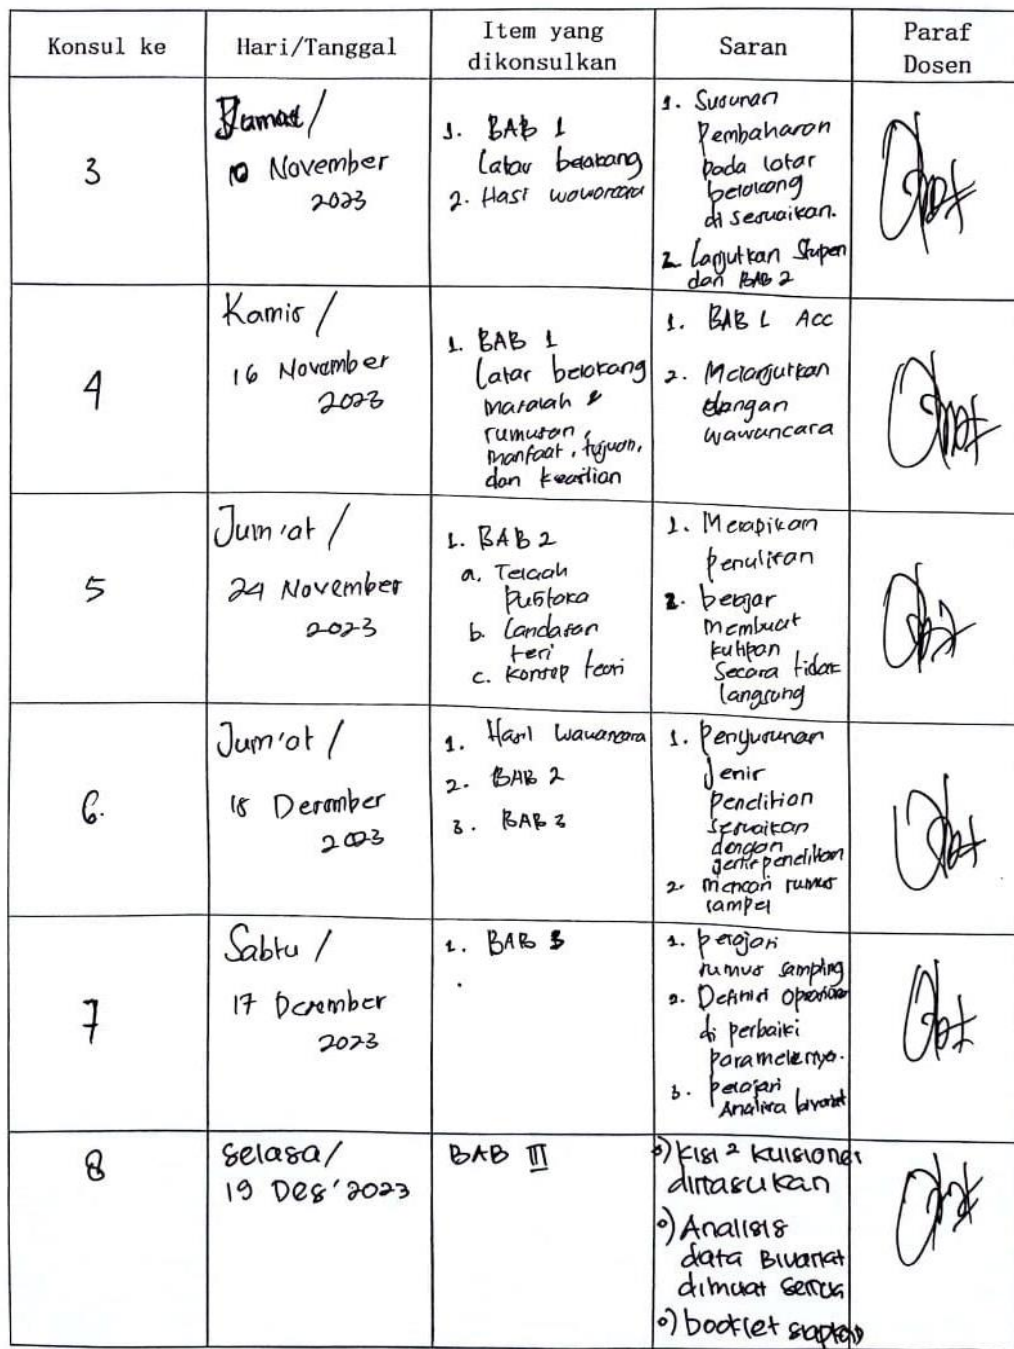 Konsul ke
Hari/Tanggal
Item yang
dikonsulkan
Saran
Paraf
Dosen
3
Jumat /
10 November
2023
1. BAB 1
Latar belakang
2. Hasi wawancara
1. Susunan
Pembaharan
pada latar
belakang
di sesuaikan.
2. Lanjutkan Stupen
dan BAB 2
4
Kamis /
16 November
2023
1. BAB 1
Latar belakang
masalah
rumusan,
manfaat, tujuan,
dan keaslian
1. BAB 1 Acc
2. Melanjutkan
dengan
wawancara
5
Jum'at /
24 November
2023
1. BAB 2
a. Telaah
Pustaka
b. Landasan
teri
c. Konsep teori
1. Merapikan
penulisan
2. belajar
membuat
kutipan
Secara tidak
langsung
6.
Jum'at /
18 Desember
2023
1. Hasil wawancara
2. BAB 2
3. BAB 3
1. Penyusunan
Jenis
penelitian
sesuaikan
dengan
jenis penelitian
2. mencari rumus
sampel
7
Sabtu /
17 Desember
2023
1. BAB 3
1. pelajari
rumus sampling
2. Definisi
di perbaiki
parameternya.
3. pelajari
Analisa bivariat
8
Selasa/
19 Des'2023
BAB III
o) kisi 2 kuisioner
dimasukan
o) Analisis
data Bivariat
dimuat
o) booklet siapkan